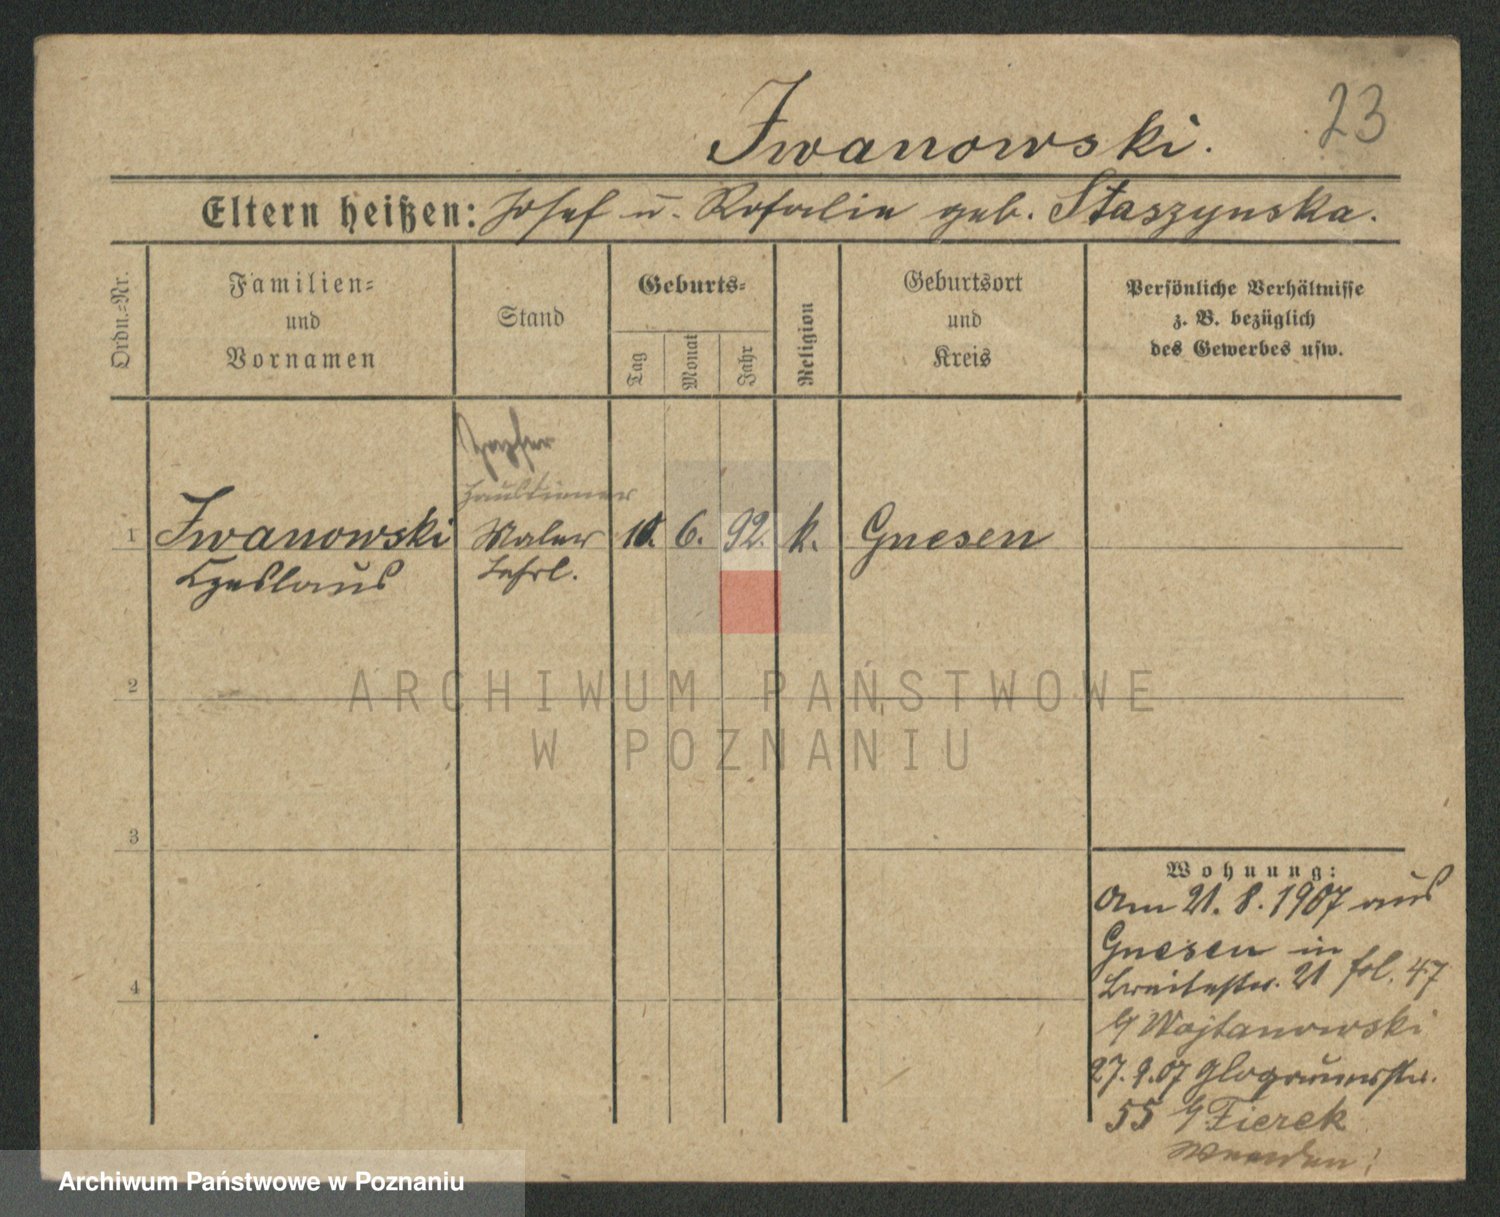 Iwanowski.
23
Eltern heißen: Josef u. Rosalie geb. Staszynska.
Ordn.-Nr.
Familien-
und
Vornamen
Stand
Geburts-
Tag
Monat
Jahr
Religion
Geburtsort
und
Kreis
Persönliche Verhältnisse
z. B. bezüglich
des Gewerbes usw.
Hausdiener
1 Iwanowski Maler 10. 6. 92. k. Gnesen
Czeslaus Lehrl.
2
3
4
Wohnung:
Am 21. 8. 1907 aus
Gnesen in
Breitestr. 21 fol. 47
b/ Wojtanowski
27. 9. 07 Glogauerstr.
55 b/ Fierek
ARCHIWUM PAŃSTWOWE
W POZNANIU
Archiwum Państwowe w Poznaniu